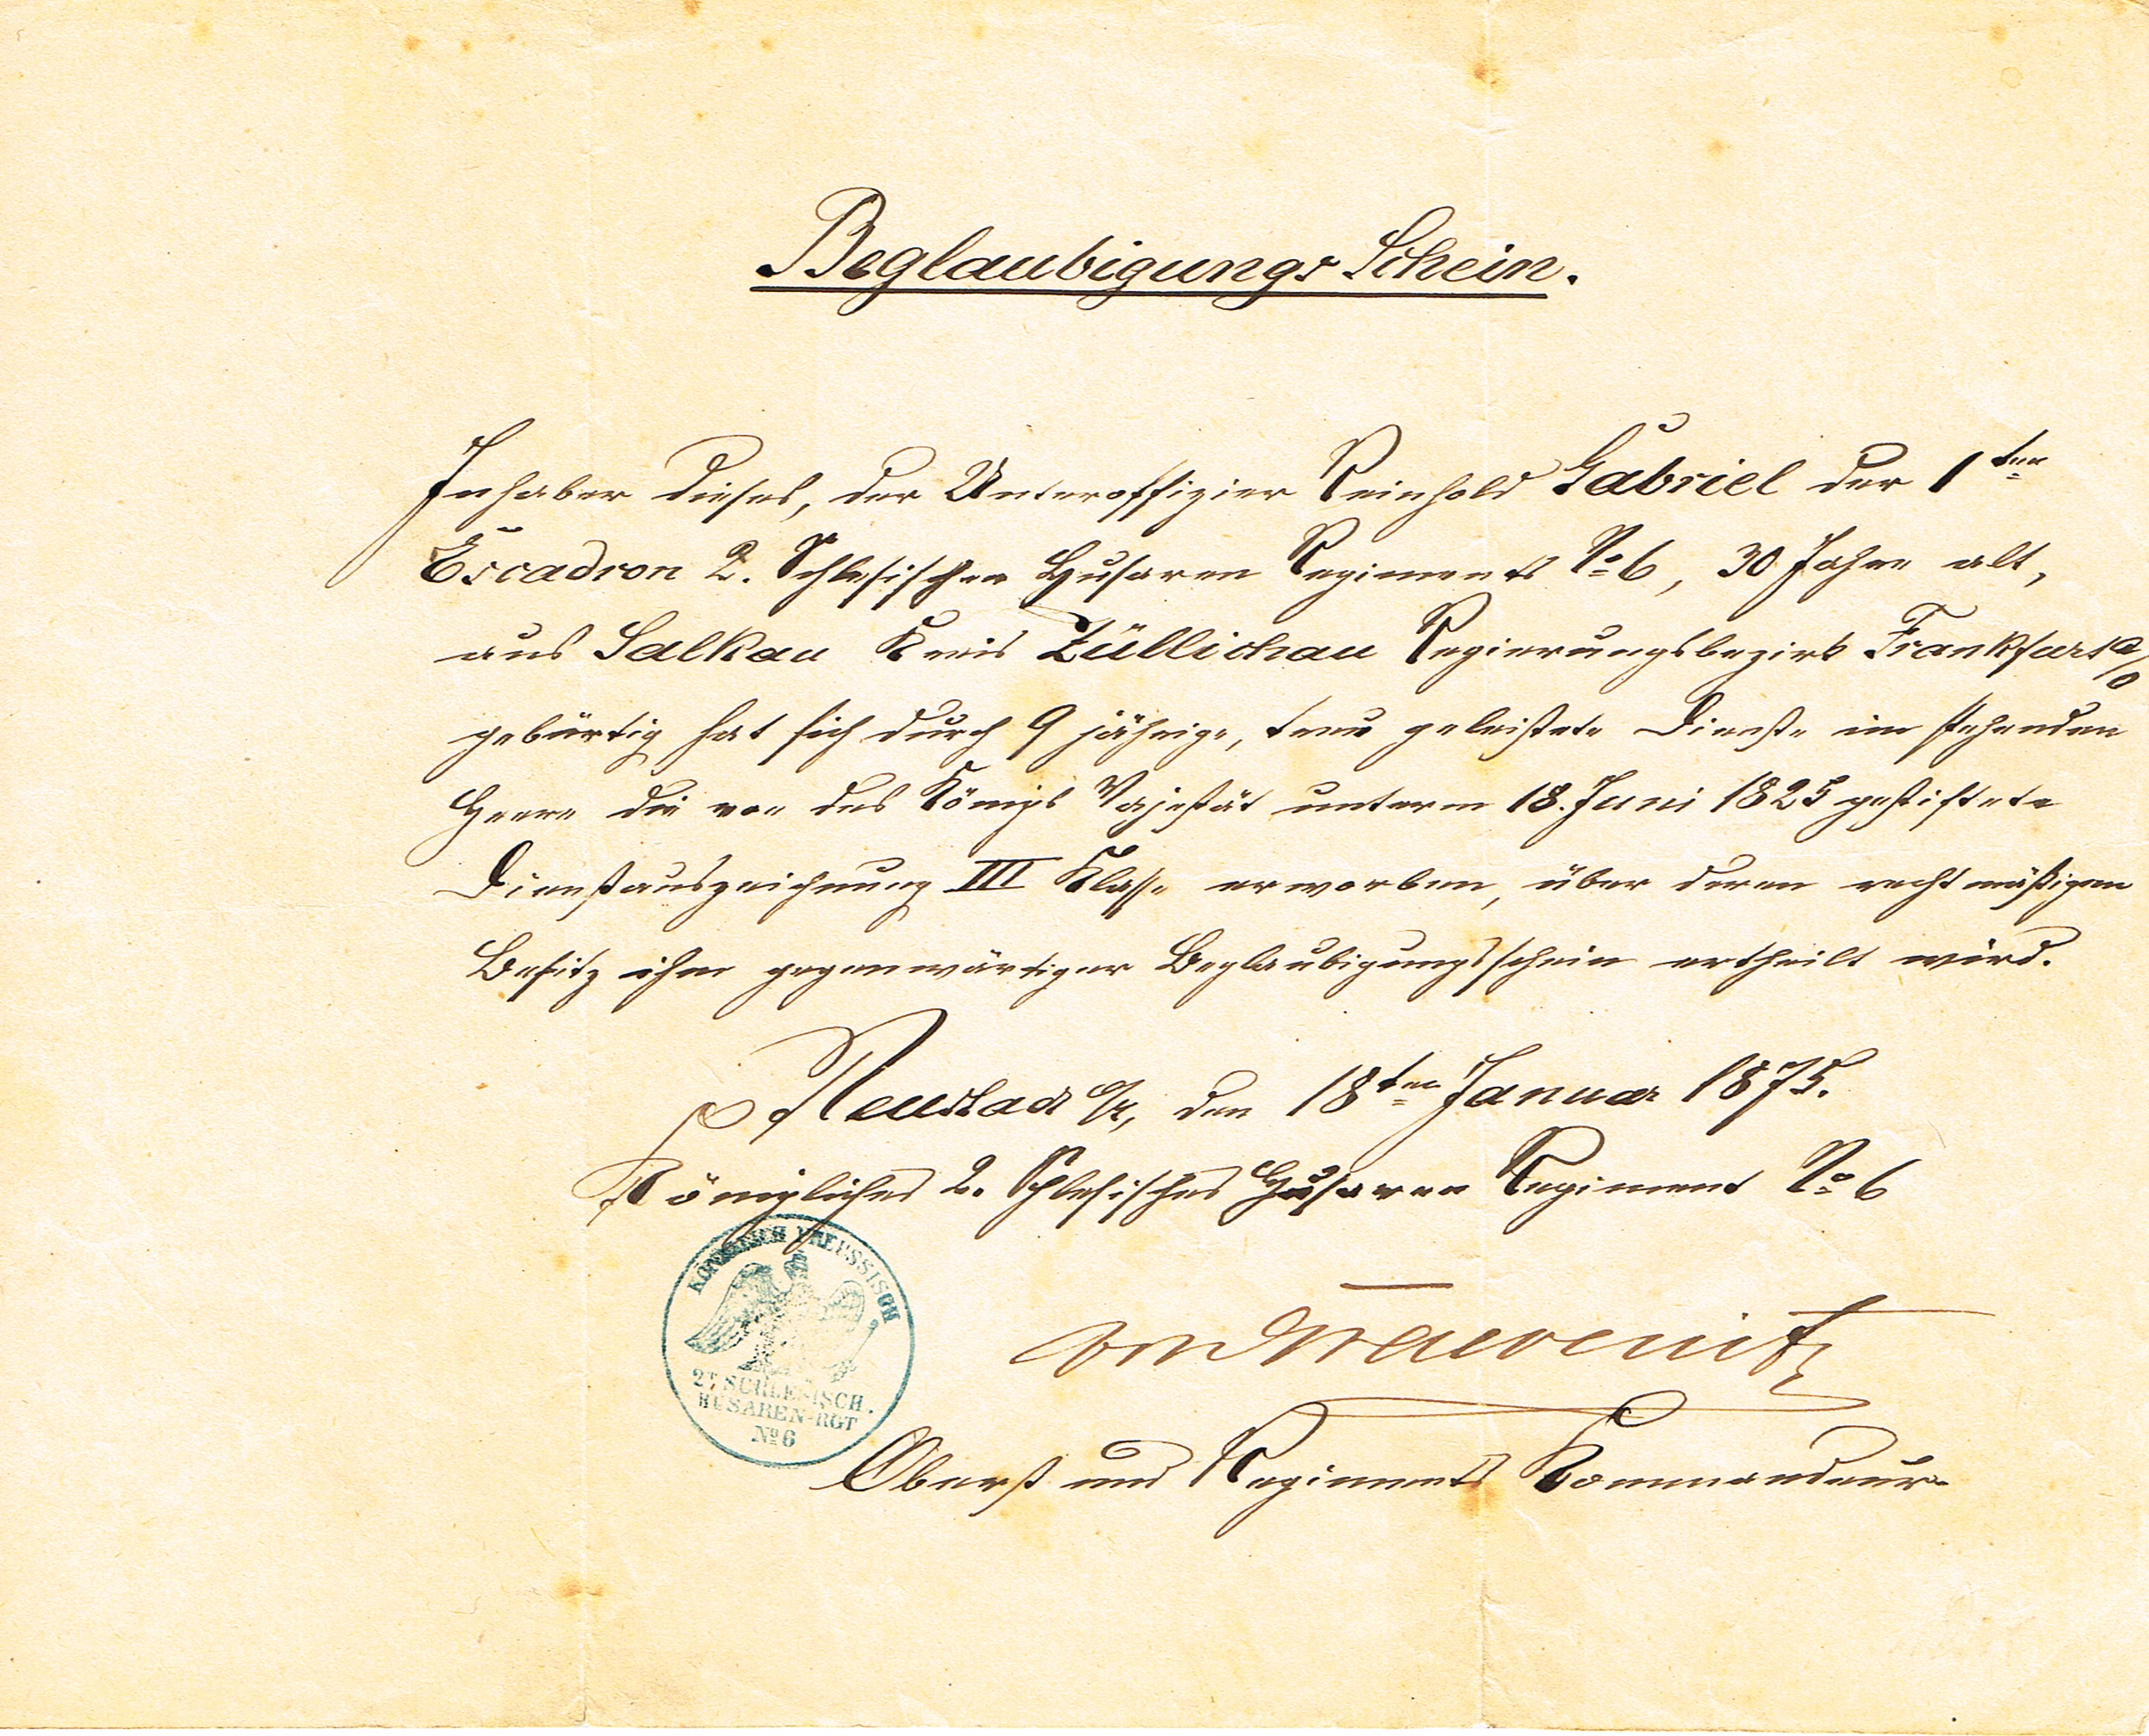 Beglaubigungs Schein.
Inhaber dieses, der Unteroffizier Reinhold Gabriel der 1ten
Escadron 2. Schlesischen Husaren Regiments No 6, 30 Jahre alt,
aus Salkau Kreis Züllichau Regierungsbezirk Frankfurt a/o
gebürtig hat sich durch 9 jährige, treu geleistete Dienste im stehenden
Heere die von des Königs Majestät unterm 18. Juni 1825 gestiftete
Dienstauszeichnung III Klasse erworben, über deren rechtmäßigen
Besitz ihm gegenwärtiger Beglaubigungsschein ertheilt wird.
Neustadt o/s, den 18ten Januar 1875.
Königliches 2. Schlesisches Husaren Regiment No 6
KÖNIGLICH PREUSSISCH
2tes SCHLESISCH.
HUSAREN-RGT
No 6
von
Oberst und Regiments Kommandeur